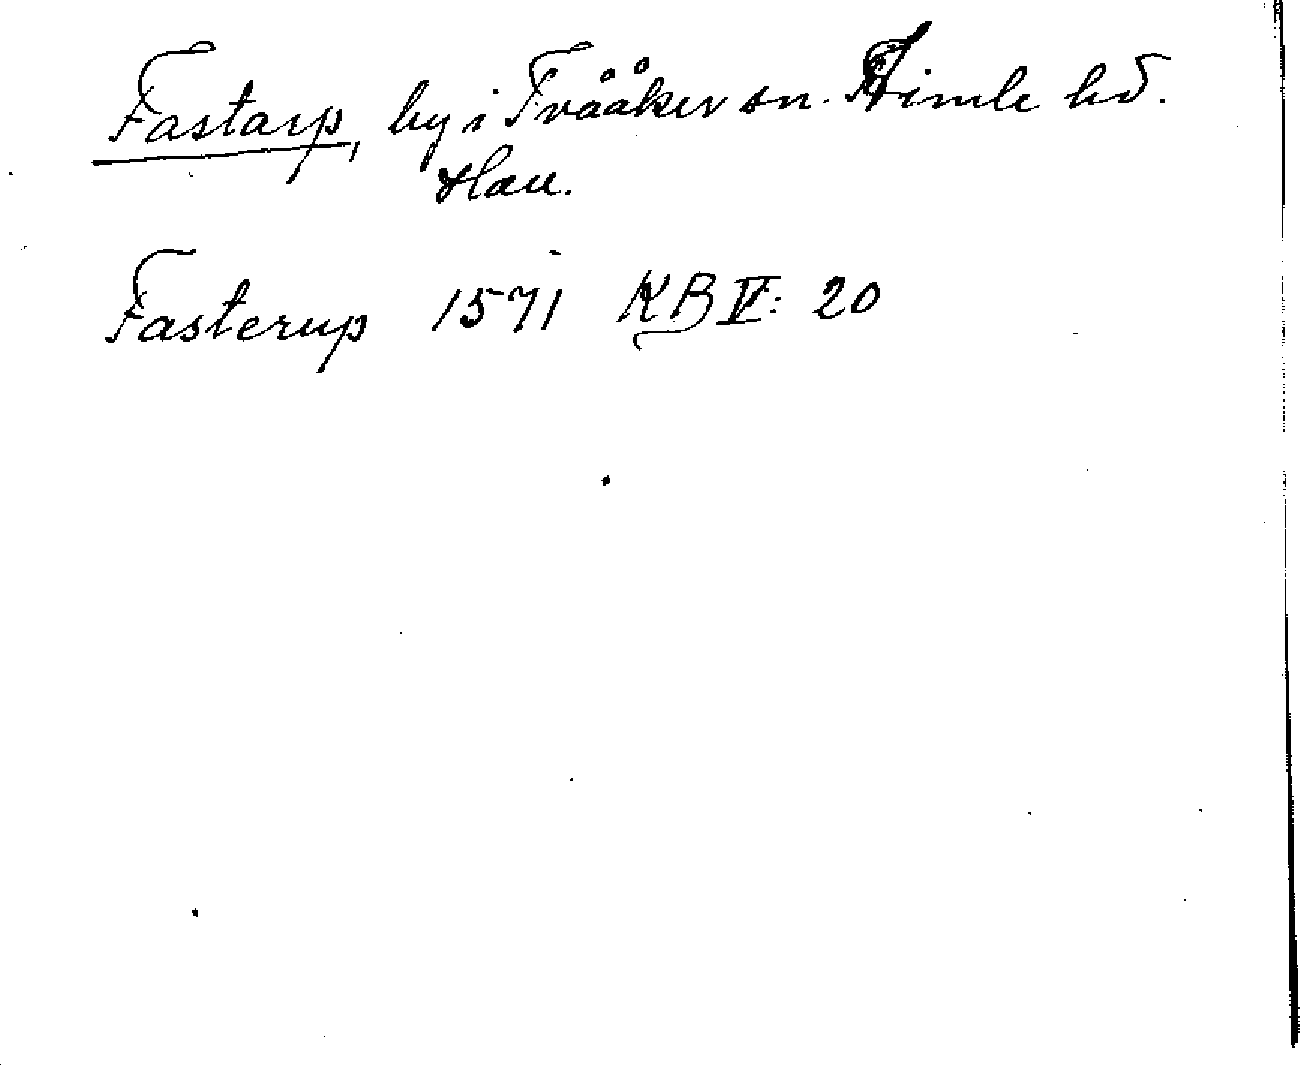 Fastarp, by i Tvååker sn. Himle hd.
Hall.
Fasterup 1571 KB V: 20